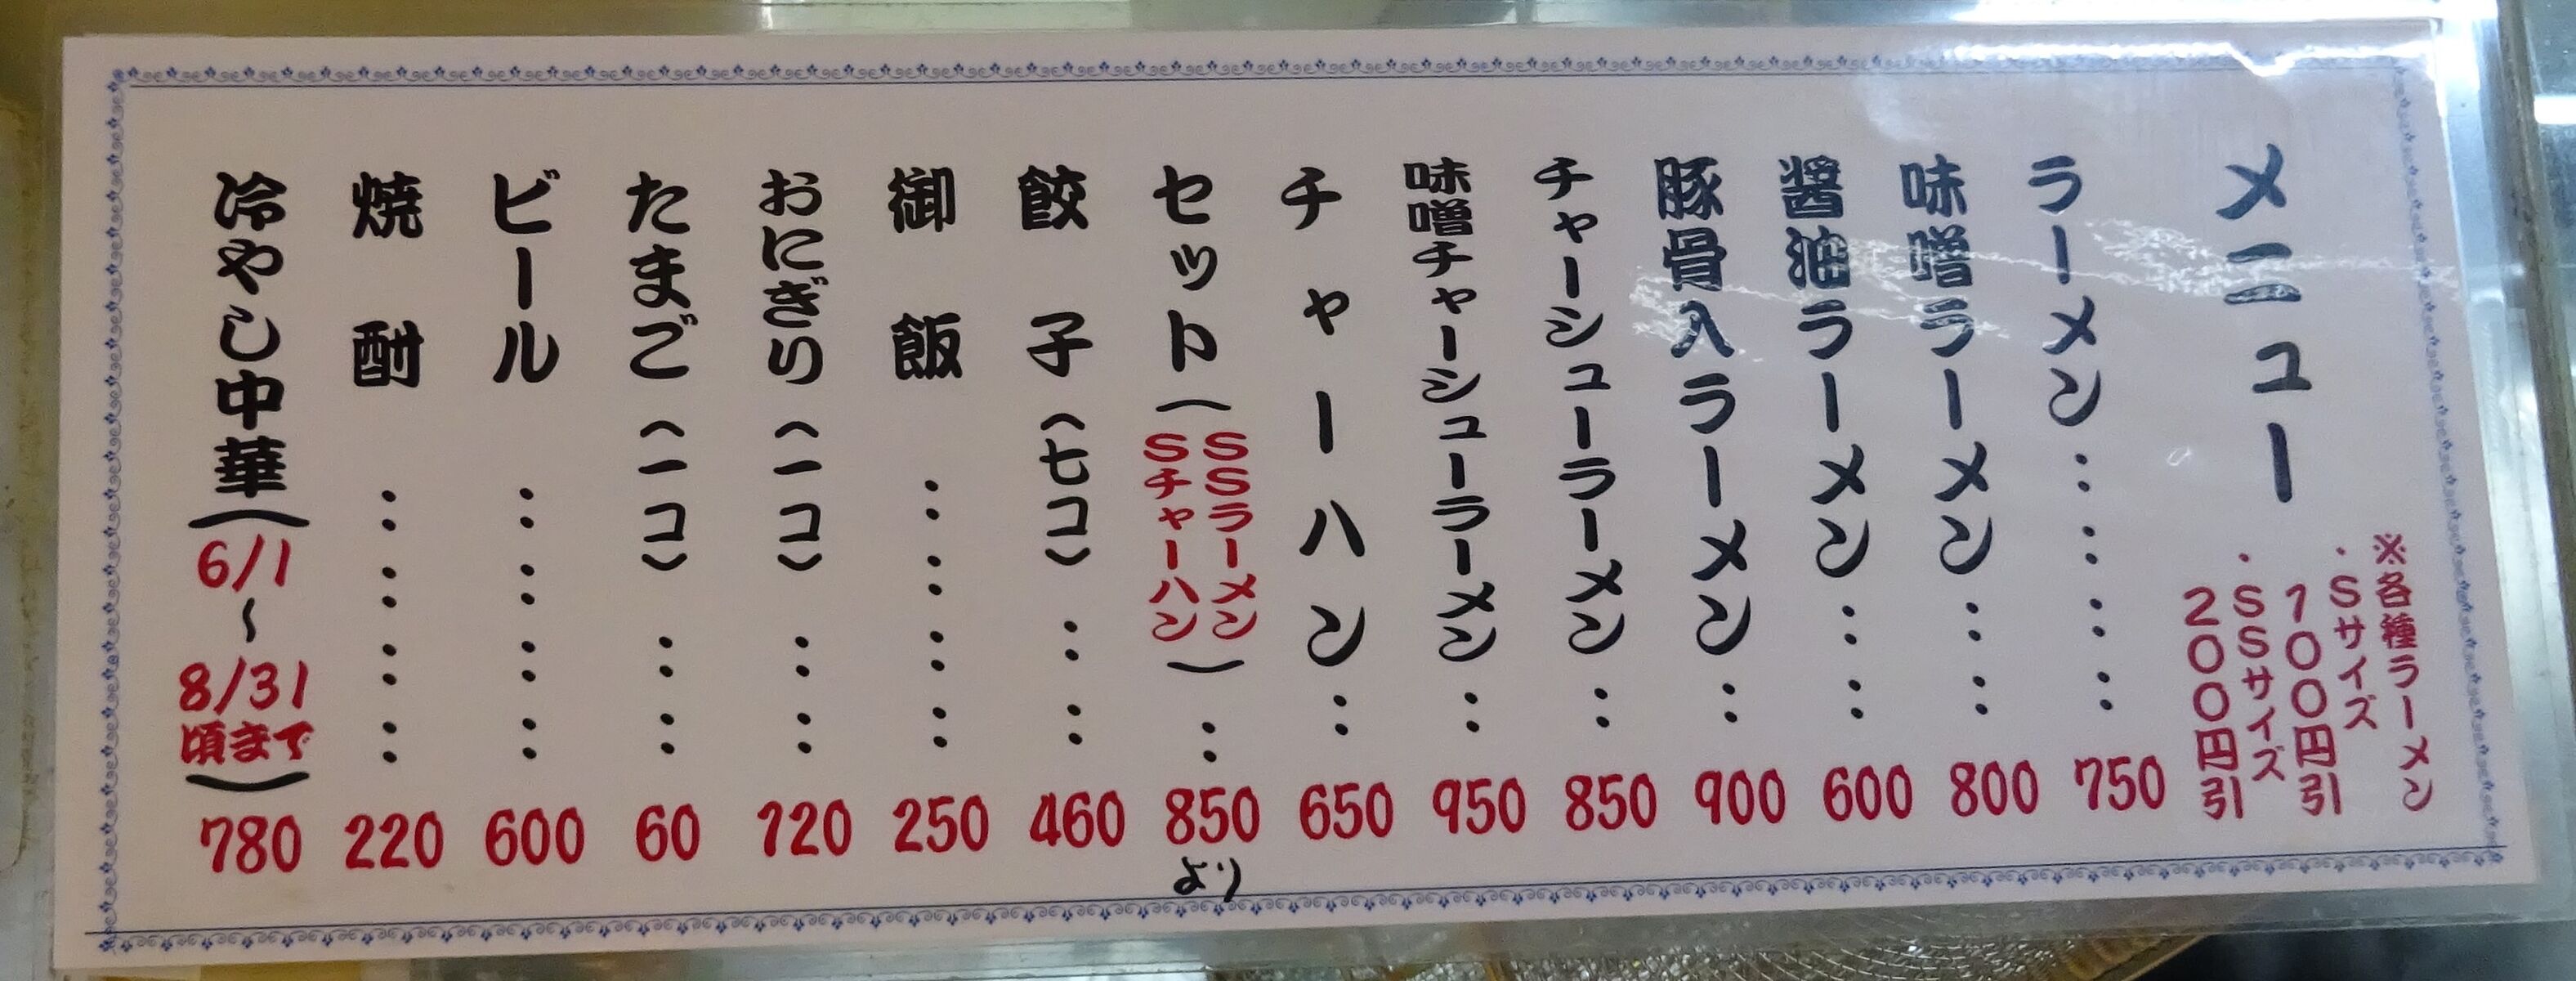 メニュー
※各種ラーメン
・Sサイズ
100円引
・SSサイズ
200円引
ラーメン……… 750
味噌ラーメン…… 800
醤油ラーメン…… 600
豚骨入ラーメン… 900
チャーシューラーメン… 850
味噌チャーシューラーメン… 950
チャーハン… 650
セット(SSラーメン
Sチャーハン)… 850
より
餃子(七コ)…… 460
御飯……… 250
おにぎり(一コ)…… 120
たまご(一コ)…… 60
ビール……… 600
焼酎……… 220
冷やし中華(6/1〜8/31頃まで) 780